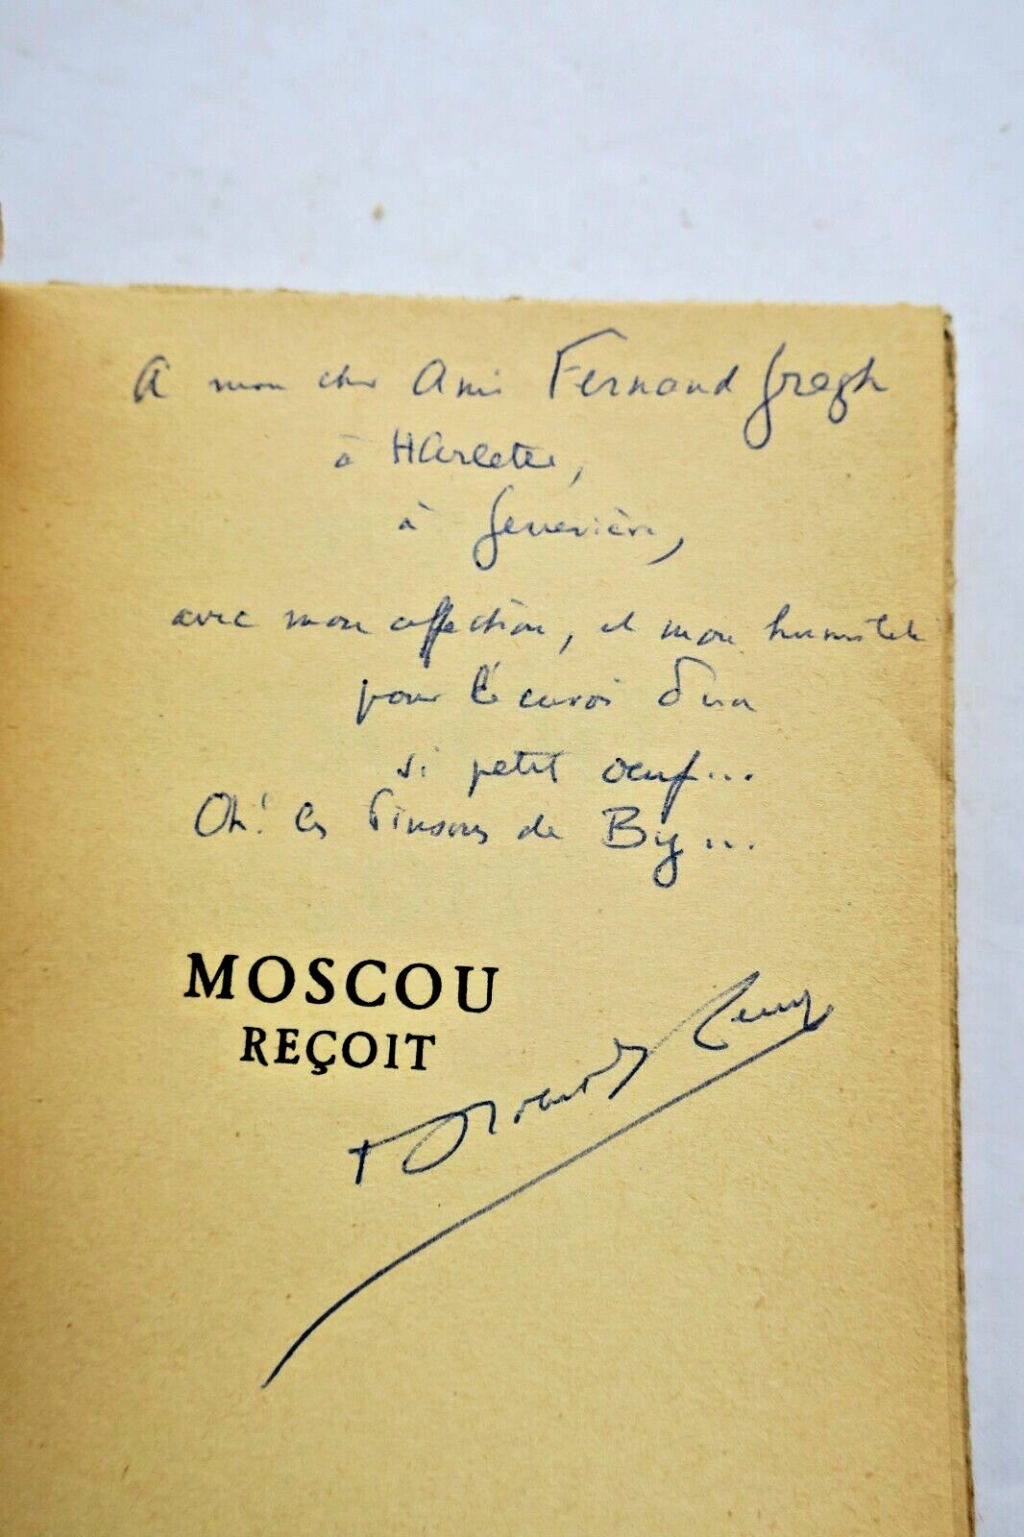 A mon cher Ami Fernand Gregh
à Harlette,
à Geneviève,
avec mon affection, et mon humilité
pour l'envoi d'un
si petit oeuf...
Oh! les Pinsons de By...
MOSCOU
REÇOIT